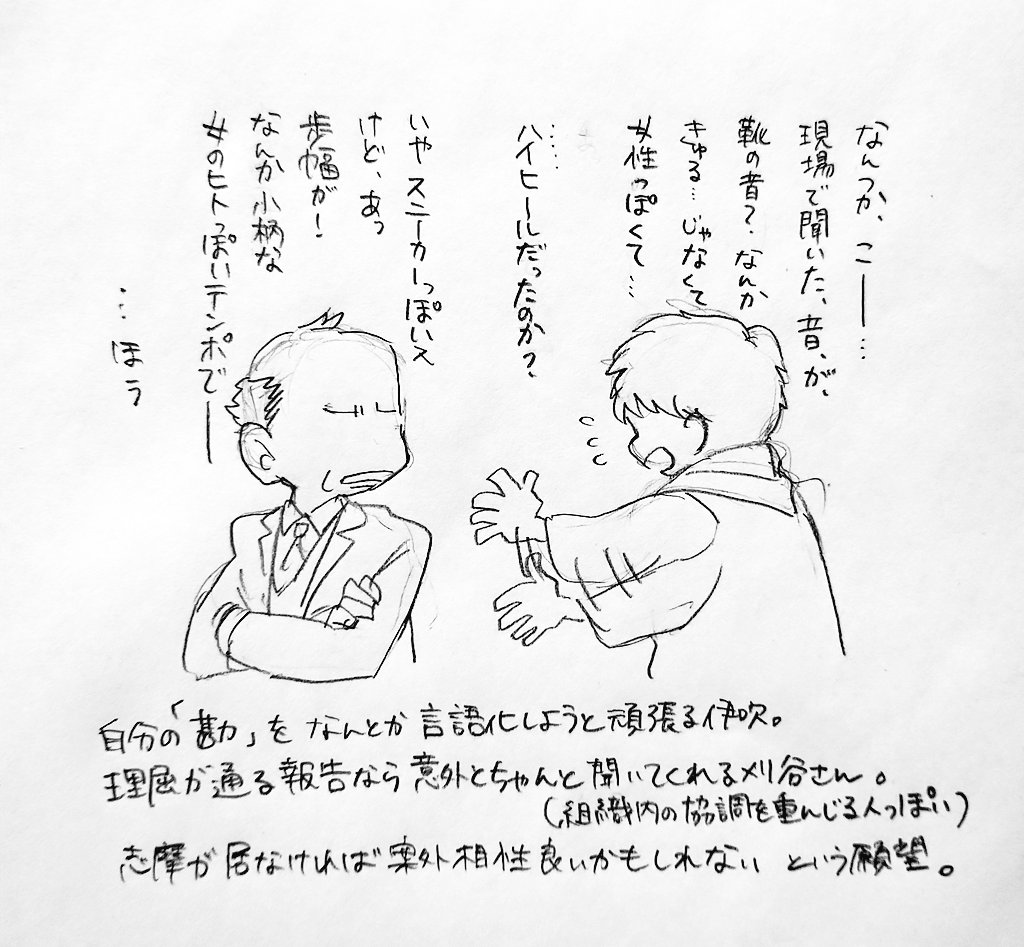 なんつか、こ――…
現場で聞いた、音、が、
靴の音?なんか
きゅる…じゃなくて
女性っぽくて…
…ハイヒールだったのか?
いやスニーカーっぽいス
けど、あっ
歩幅が!
なんか小柄な
女のヒトっぽいテンポで――
…ほう
自分の「勘」をなんとか言語化しようと頑張る伊吹。
理屈が通る報告なら意外とちゃんと聞いてくれる刈谷さん。
(組織内の協調を重んじる人っぽい)
志摩が居なければ案外相性良いかもしれない という願望。